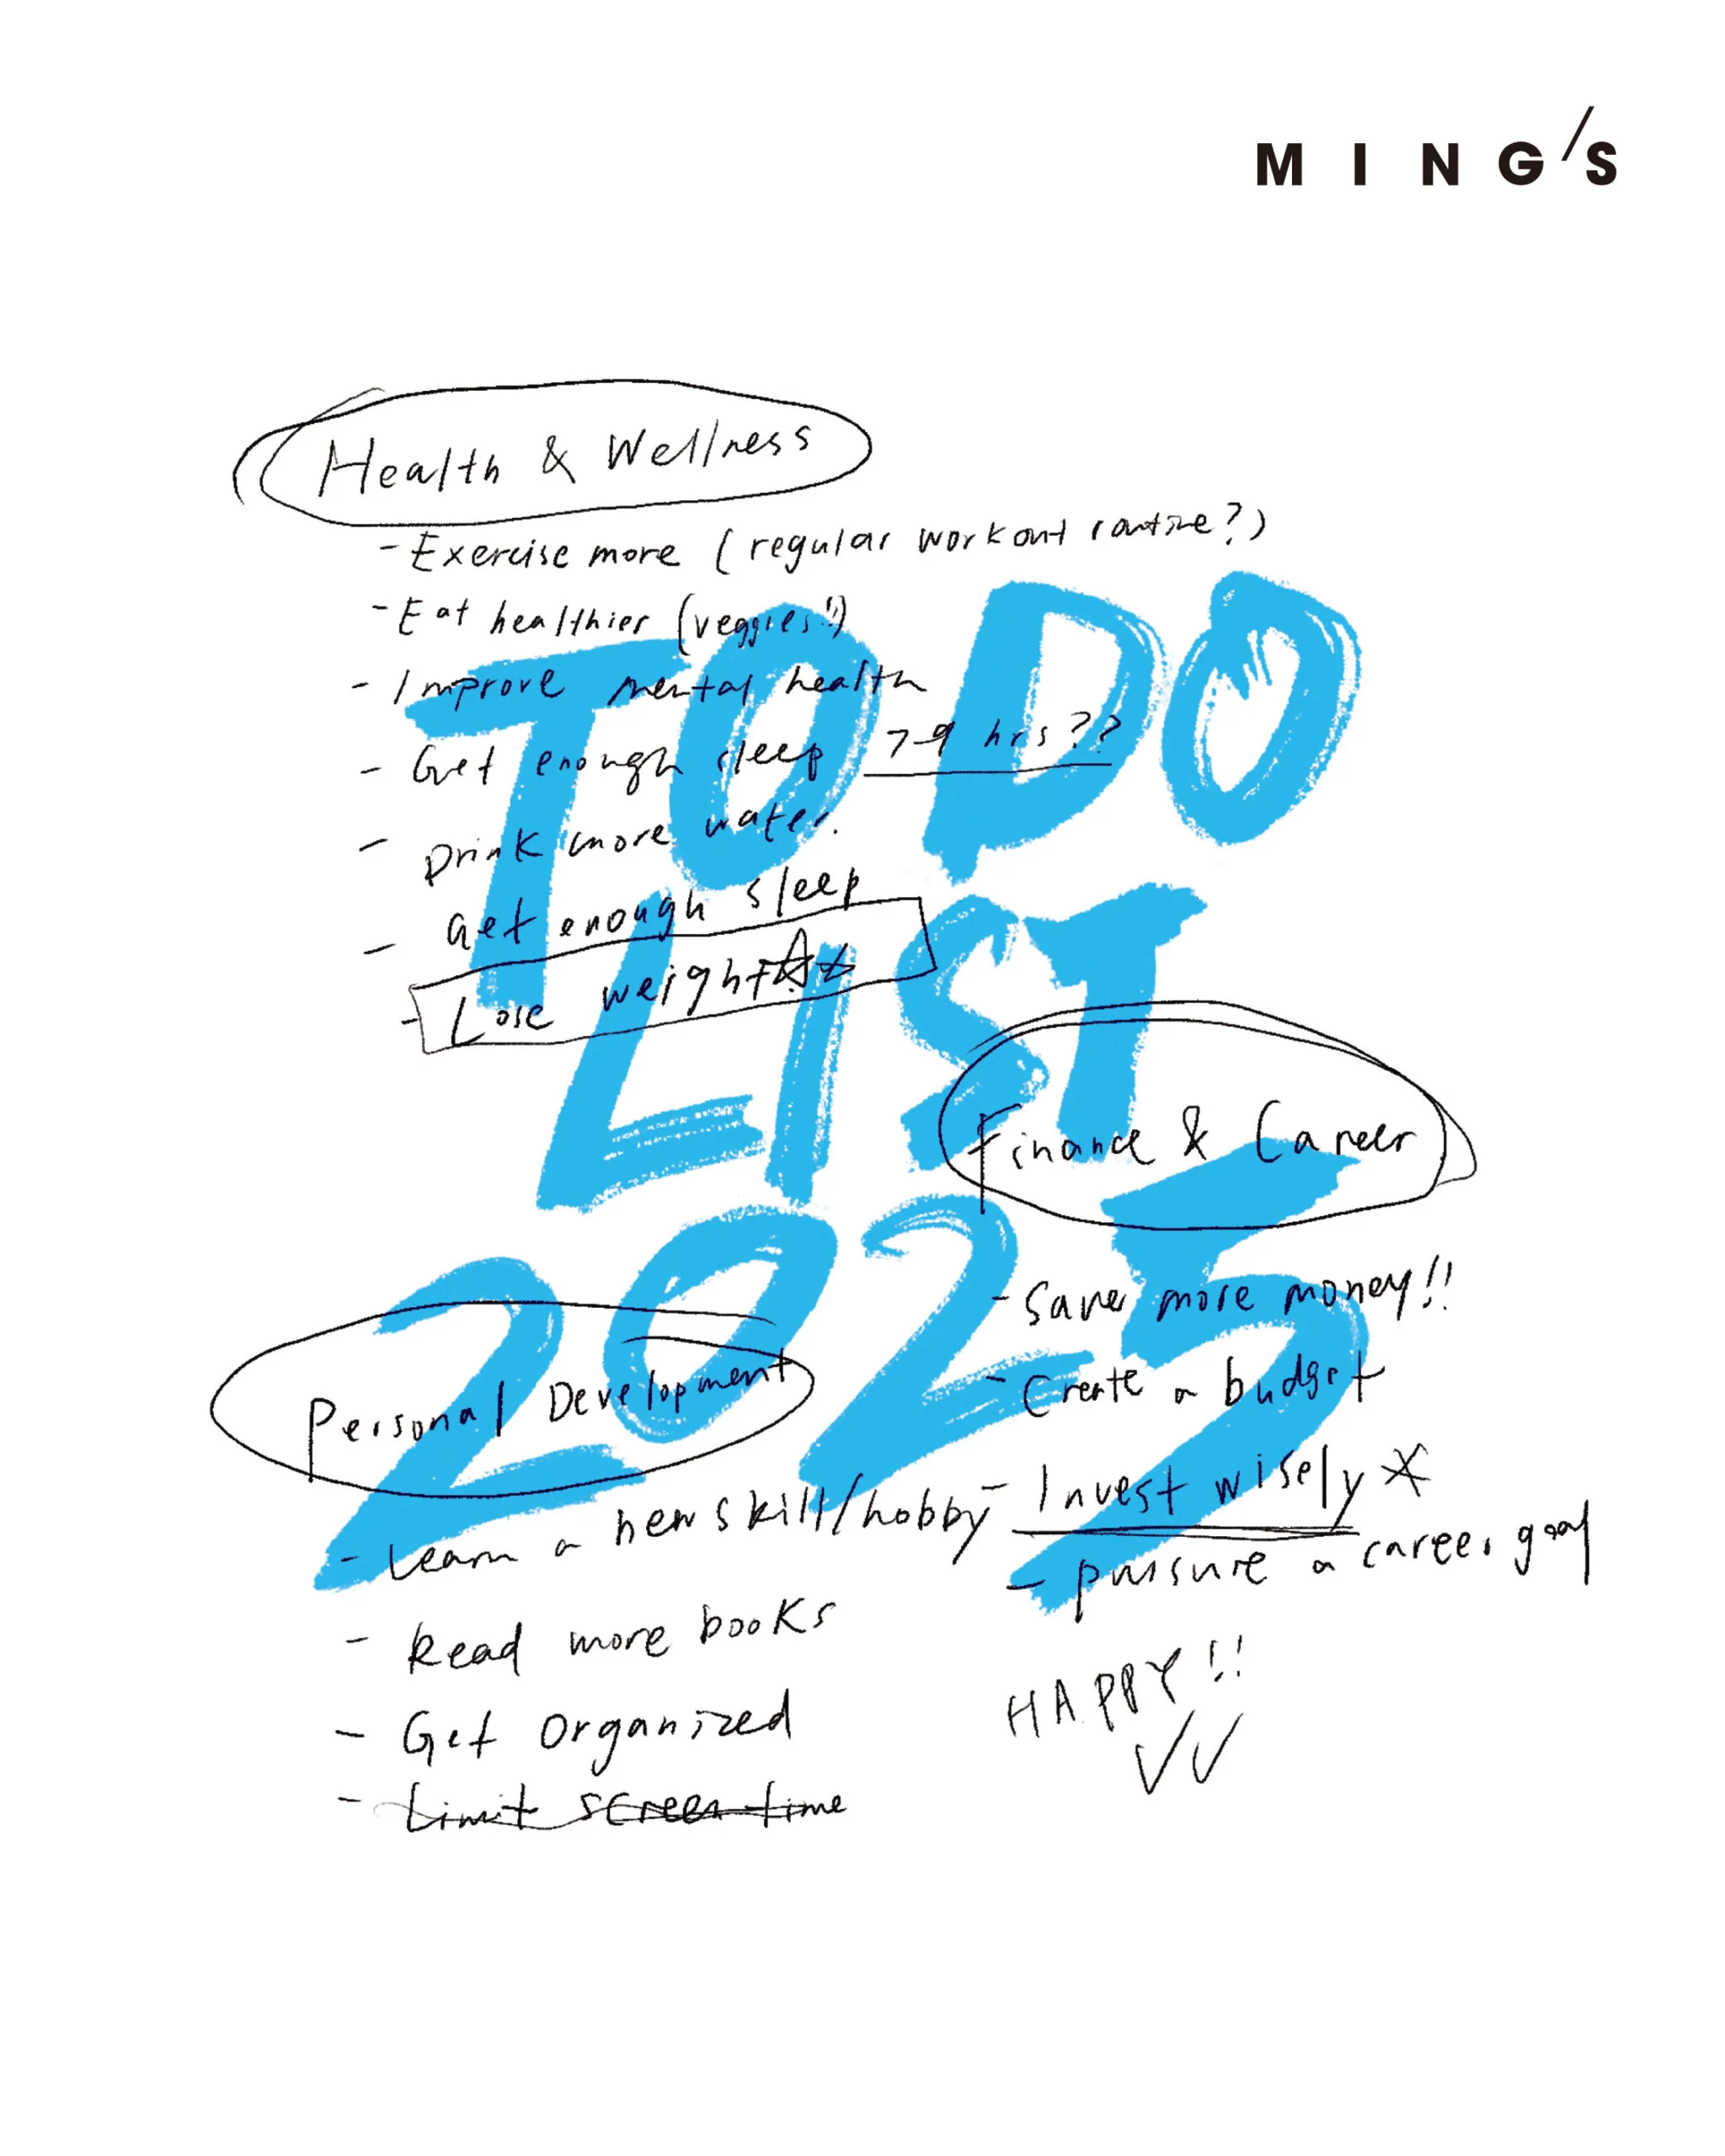 MING'S
Health & Wellness
- Exercise more (regular workout routine?)
- Eat healthier (veggies!!)
- Improve mental health
- Get enough sleep 7-9 hrs??
- Drink more water.
- Get enough sleep
- Lose weight
TO DO
LIST
2025
Finance & Career
- Save more money!!
- Create a budget
- Invest wisely
- pursure a career goal
HAPPY!!
Personal Development
- Learn a new skill/hobby
- Read more books
- Get organized
- Limit screen time